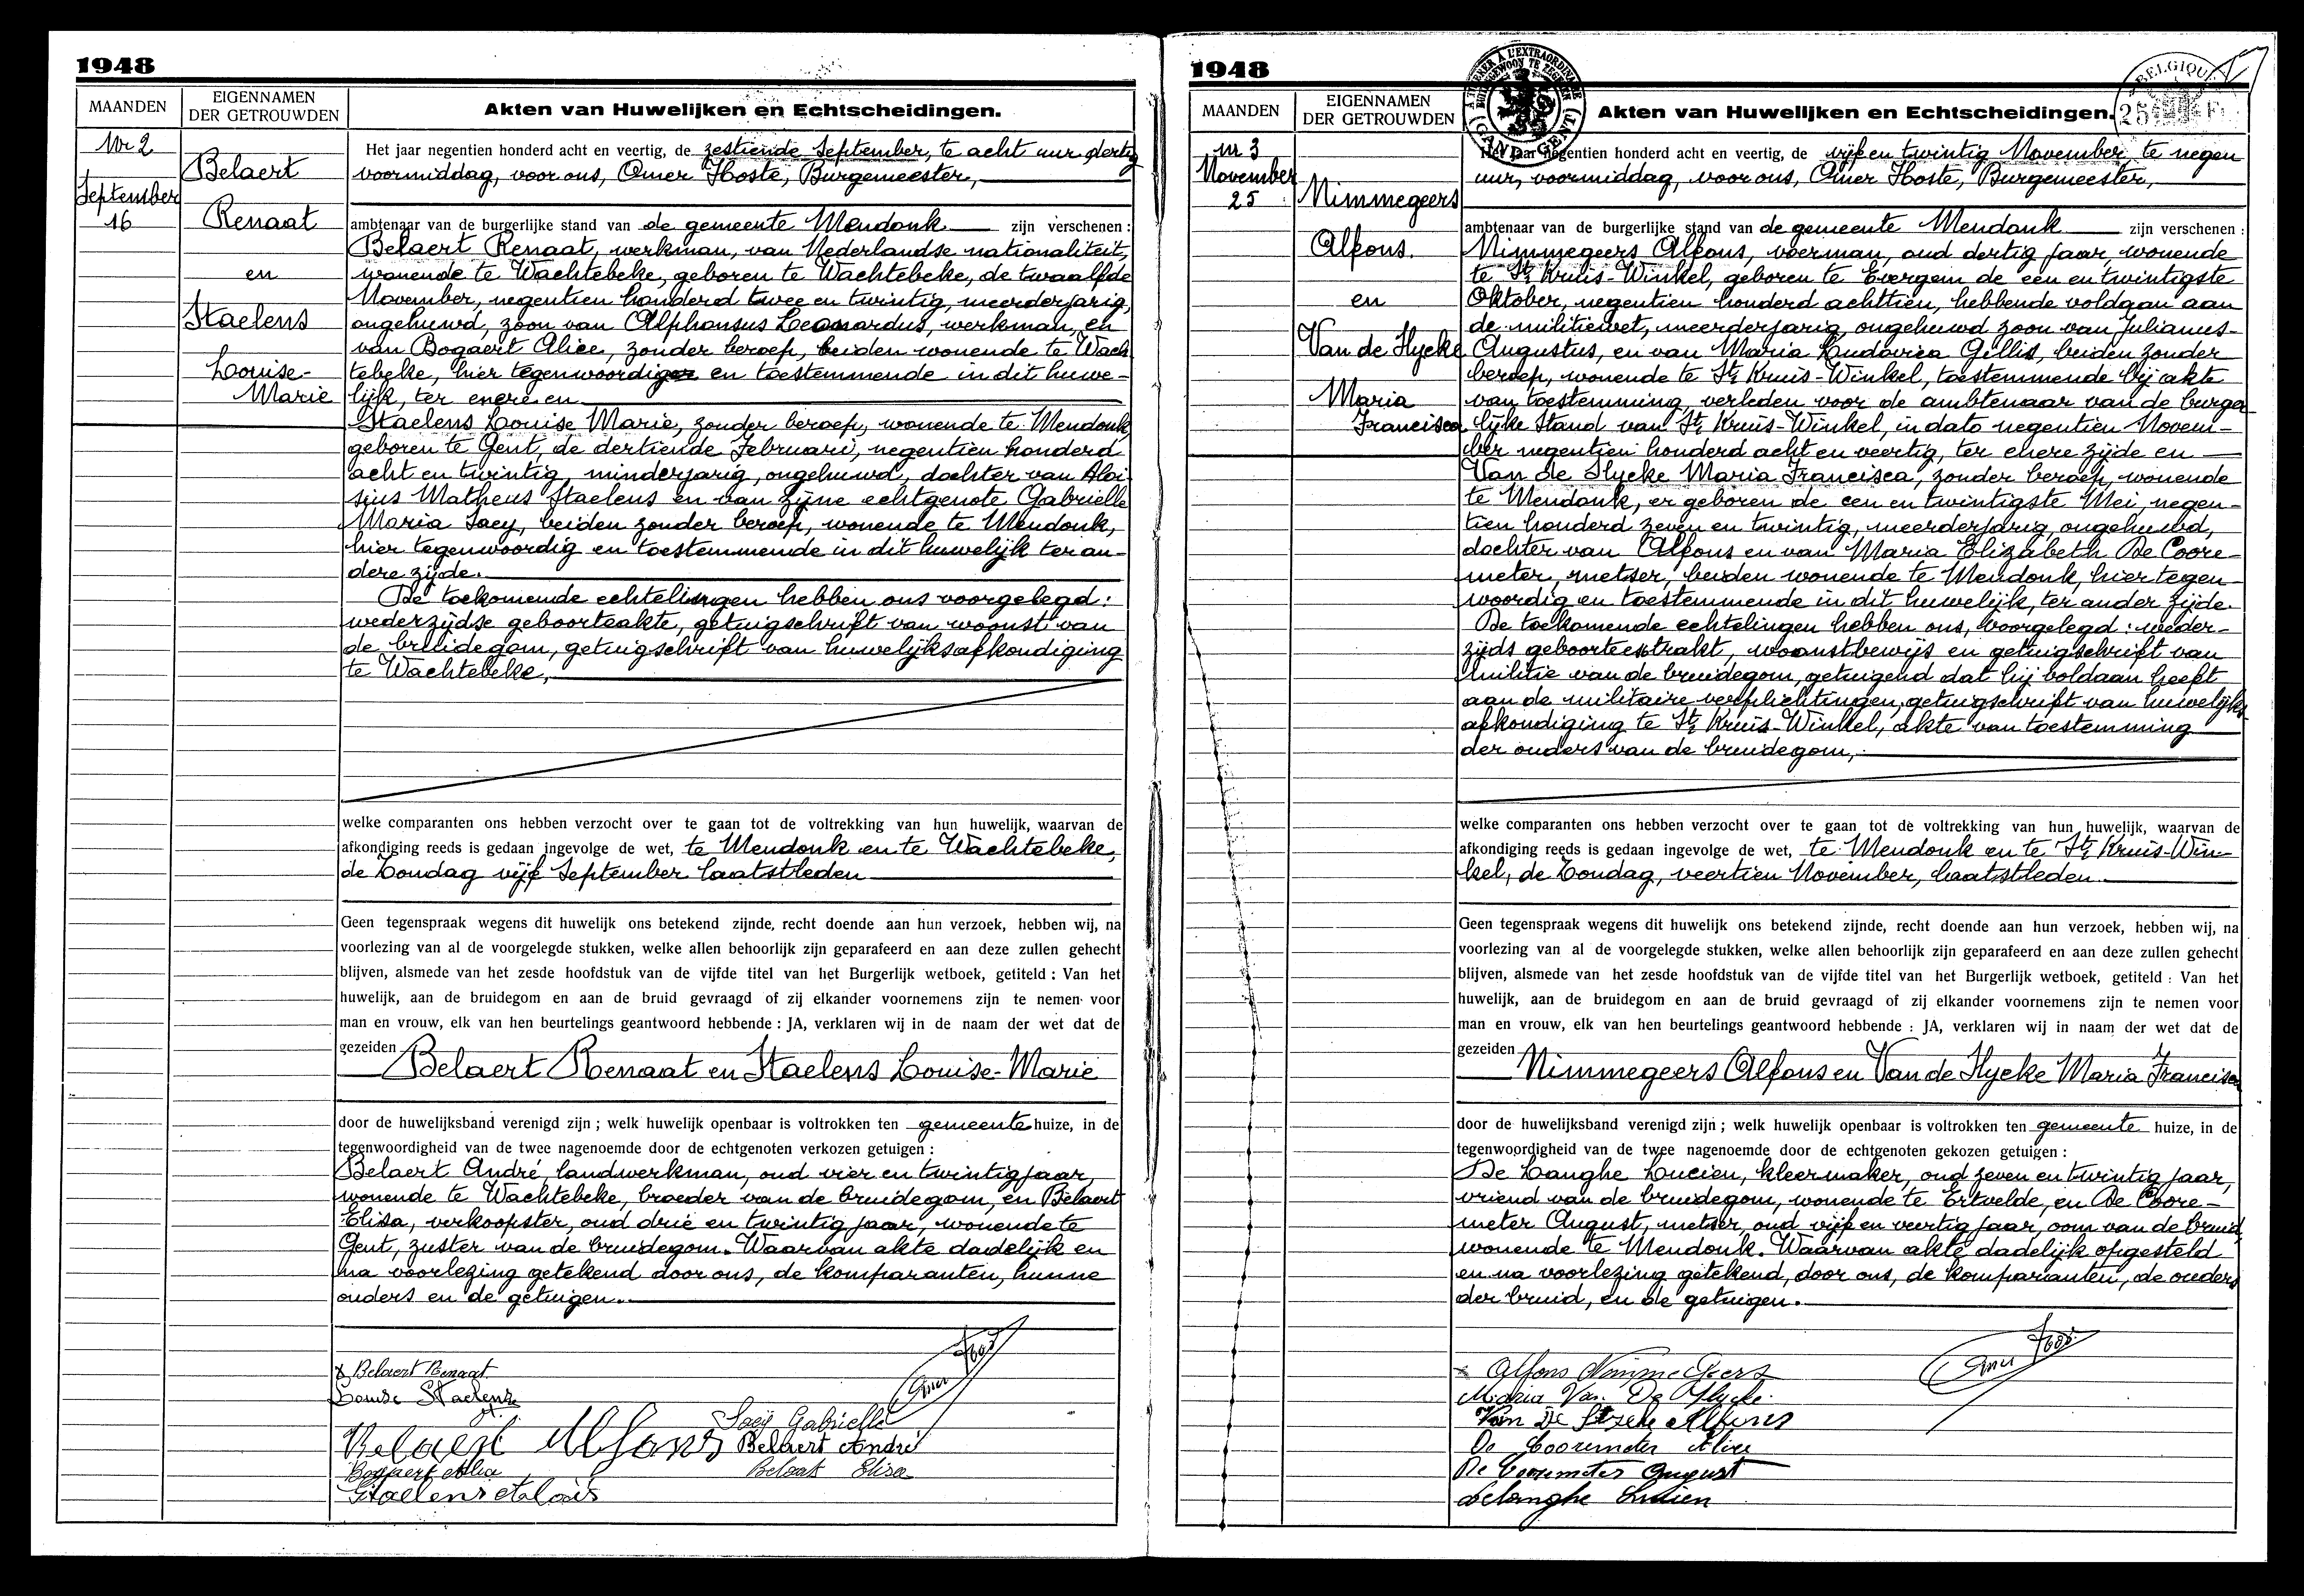 1948
MAANDEN
EIGENNAMEN
DER GETROUWDEN
Akten van Huwelijken en Echtscheidingen.
Nr 2
September
16
Belaert
Renaat
en
Staelens
Louise-
Marie
Het jaar negentien honderd acht en veertig, de zestiende September, te acht uur dertig
voormiddag, voor ons, Omer Hoste, Burgemeester,
ambtenaar van de burgerlijke stand van de gemeente Mendonk zijn verschenen :
Belaert Renaat, werkman, van Nederlandse nationaliteit,
wonende te Wachtebeke, geboren te Wachtebeke, de twaalfde
November, negentien honderd twee en twintig, meerderjarig,
ongehuwd, zoon van Alphonsus Leonardus, werkman, en
van Bogaert Alice, zonder beroep, beiden wonende te Wach
tebeke, hier tegenwoordig en toestemmende in dit huwe-
lijk, ter enere en
Staelens Louise Marie, zonder beroep, wonende te Mendonk,
geboren te Gent, de dertiende Februari, negentien honderd
acht en twintig, minderjarig, ongehuwd, dochter van Aloi-
sius Matheus Staelens en van zijne echtgenote Gabrielle
Maria Saey, beiden zonder beroep, wonende te Mendonk,
hier tegenwoordig en toestemmende in dit huwelijk ter an-
dere zijde.
De toekomende echtelingen hebben ons voorgelegd:
wederzijdse geboorteakte, getuigschrift van woonst van
de bruidegom, getuigschrift van huwelijksafkondiging
te Wachtebeke,
welke comparanten ons hebben verzocht over te gaan tot de voltrekking van hun huwelijk, waarvan de
afkondiging reeds is gedaan ingevolge de wet, te Mendonk en te Wachtebeke,
de Zondag vijf September laatstleden
Geen tegenspraak wegens dit huwelijk ons betekend zijnde, recht doende aan hun verzoek, hebben wij, na
voorlezing van al de voorgelegde stukken, welke allen behoorlijk zijn geparafeerd en aan deze zullen gehecht
blijven, alsmede van het zesde hoofdstuk van de vijfde titel van het Burgerlijk wetboek, getiteld : Van het
huwelijk, aan de bruidegom en aan de bruid gevraagd of zij elkander voornemens zijn te nemen voor
man en vrouw, elk van hen beurtelings geantwoord hebbende : JA, verklaren wij in de naam der wet dat de
gezeiden
Belaert Renaat en Staelens Louise-Marie
door de huwelijksband verenigd zijn ; welk huwelijk openbaar is voltrokken ten gemeente huize, in de
tegenwoordigheid van de twee nagenoemde door de echtgenoten verkozen getuigen :
Belaert André, landwerkman, oud vier en twintig jaar,
wonende te Wachtebeke, broeder van de bruidegom, en Belaert
Elisa, verkoopster, oud drie en twintig jaar, wonende te
Gent, zuster van de bruidegom. Waarvan akte dadelijk en
na voorlezing getekend door ons, de komparanten, hunne
ouders en de getuigen.
Belaert Renaat
Louise Staelens
Omer Hoste
Saey Gabrielle
Belaert Alfons Belaert André
Bogaert Alice Belaert Elisa
Staelens Aloïs
1948
MAANDEN
EIGENNAMEN
DER GETROUWDEN
Akten van Huwelijken en Echtscheidingen.
BELGIQUE
GAND (GENT)
nr 3
November
25
Nimmegeers
Alfons.
en
Van de Slycke
Maria
Francisca
Het jaar negentien honderd acht en veertig, de vijf en twintig November te negen
uur, voormiddag, voor ons, Omer Hoste, Burgemeester,
ambtenaar van de burgerlijke stand van de gemeente Mendonk zijn verschenen :
Nimmegeers Alfons, voerman, oud dertig jaar, wonende
te St Kruis-Winkel, geboren te Evergem de een en twintigste
Oktober, negentien honderd achttien, hebbende voldaan aan
de militiewet, meerderjarig, ongehuwd zoon van Julianus-
Augustus, en van Maria Ludovica Gillis, beiden zonder
beroep, wonende te St Kruis-Winkel, toestemmende bij akte
van toestemming verleden voor de ambtenaar van de burger
lijke Stand van St Kruis-Winkel, in dato negentien Novem-
ber negentien honderd acht en veertig, ter enere zijde en
Van de Slycke Maria Francisca, zonder beroep, wonende
te Mendonk, er geboren de een en twintigste Mei, negen-
tien honderd zeven en twintig, meerderjarig, ongehuwd,
dochter van Alfons en van Maria Elizabeth De Coore-
meter, metser, beiden wonende te Mendonk, hier tegen-
woordig en toestemmende in dit huwelijk, ter ander zijde.
De toekomende echtelingen hebben ons, voorgelegd: weder-
zijds geboorteextrakt, woonstbewijs en getuigschrift van
militie van de bruidegom, getuigend dat hij voldaan heeft
aan de militaire verplichtingen, getuigschrift van huwelijks-
afkondiging te St Kruis-Winkel, akte van toestemming
der ouders van de bruidegom,
welke comparanten ons hebben verzocht over te gaan tot de voltrekking van hun huwelijk, waarvan de
afkondiging reeds is gedaan ingevolge de wet, te Mendonk en te St Kruis-Win-
kel, de Zondag, veertien November, laatstleden.
Geen tegenspraak wegens dit huwelijk ons betekend zijnde, recht doende aan hun verzoek, hebben wij, na
voorlezing van al de voorgelegde stukken, welke allen behoorlijk zijn geparafeerd en aan deze zullen gehecht
blijven, alsmede van het zesde hoofdstuk van de vijfde titel van het Burgerlijk wetboek, getiteld : Van het
huwelijk, aan de bruidegom en aan de bruid gevraagd of zij elkander voornemens zijn te nemen voor
man en vrouw, elk van hen beurtelings geantwoord hebbende : JA, verklaren wij in naam der wet dat de
gezeiden
Nimmegeers Alfons en Van de Slycke Maria Francisca
door de huwelijksband verenigd zijn ; welk huwelijk openbaar is voltrokken ten gemeente huize, in de
tegenwoordigheid van de twee nagenoemde door de echtgenoten gekozen getuigen :
De Langhe Lucien, kleermaker, oud zeven en twintig jaar,
vriend van de bruidegom, wonende te Ertvelde, en De Coore-
meter August, metser, oud vijf en veertig jaar, oom van de bruid,
wonende te Mendonk. Waarvan akte dadelijk opgesteld
en na voorlezing getekend, door ons, de komparanten, de ouders
der bruid, en de getuigen.
Alfons Nimmegeers
Omer Hoste
Maria Van De Slycke
Van De Slycke Alfons
De Cooremeter Alice
De Cooremeter August
Delanghe Lucien